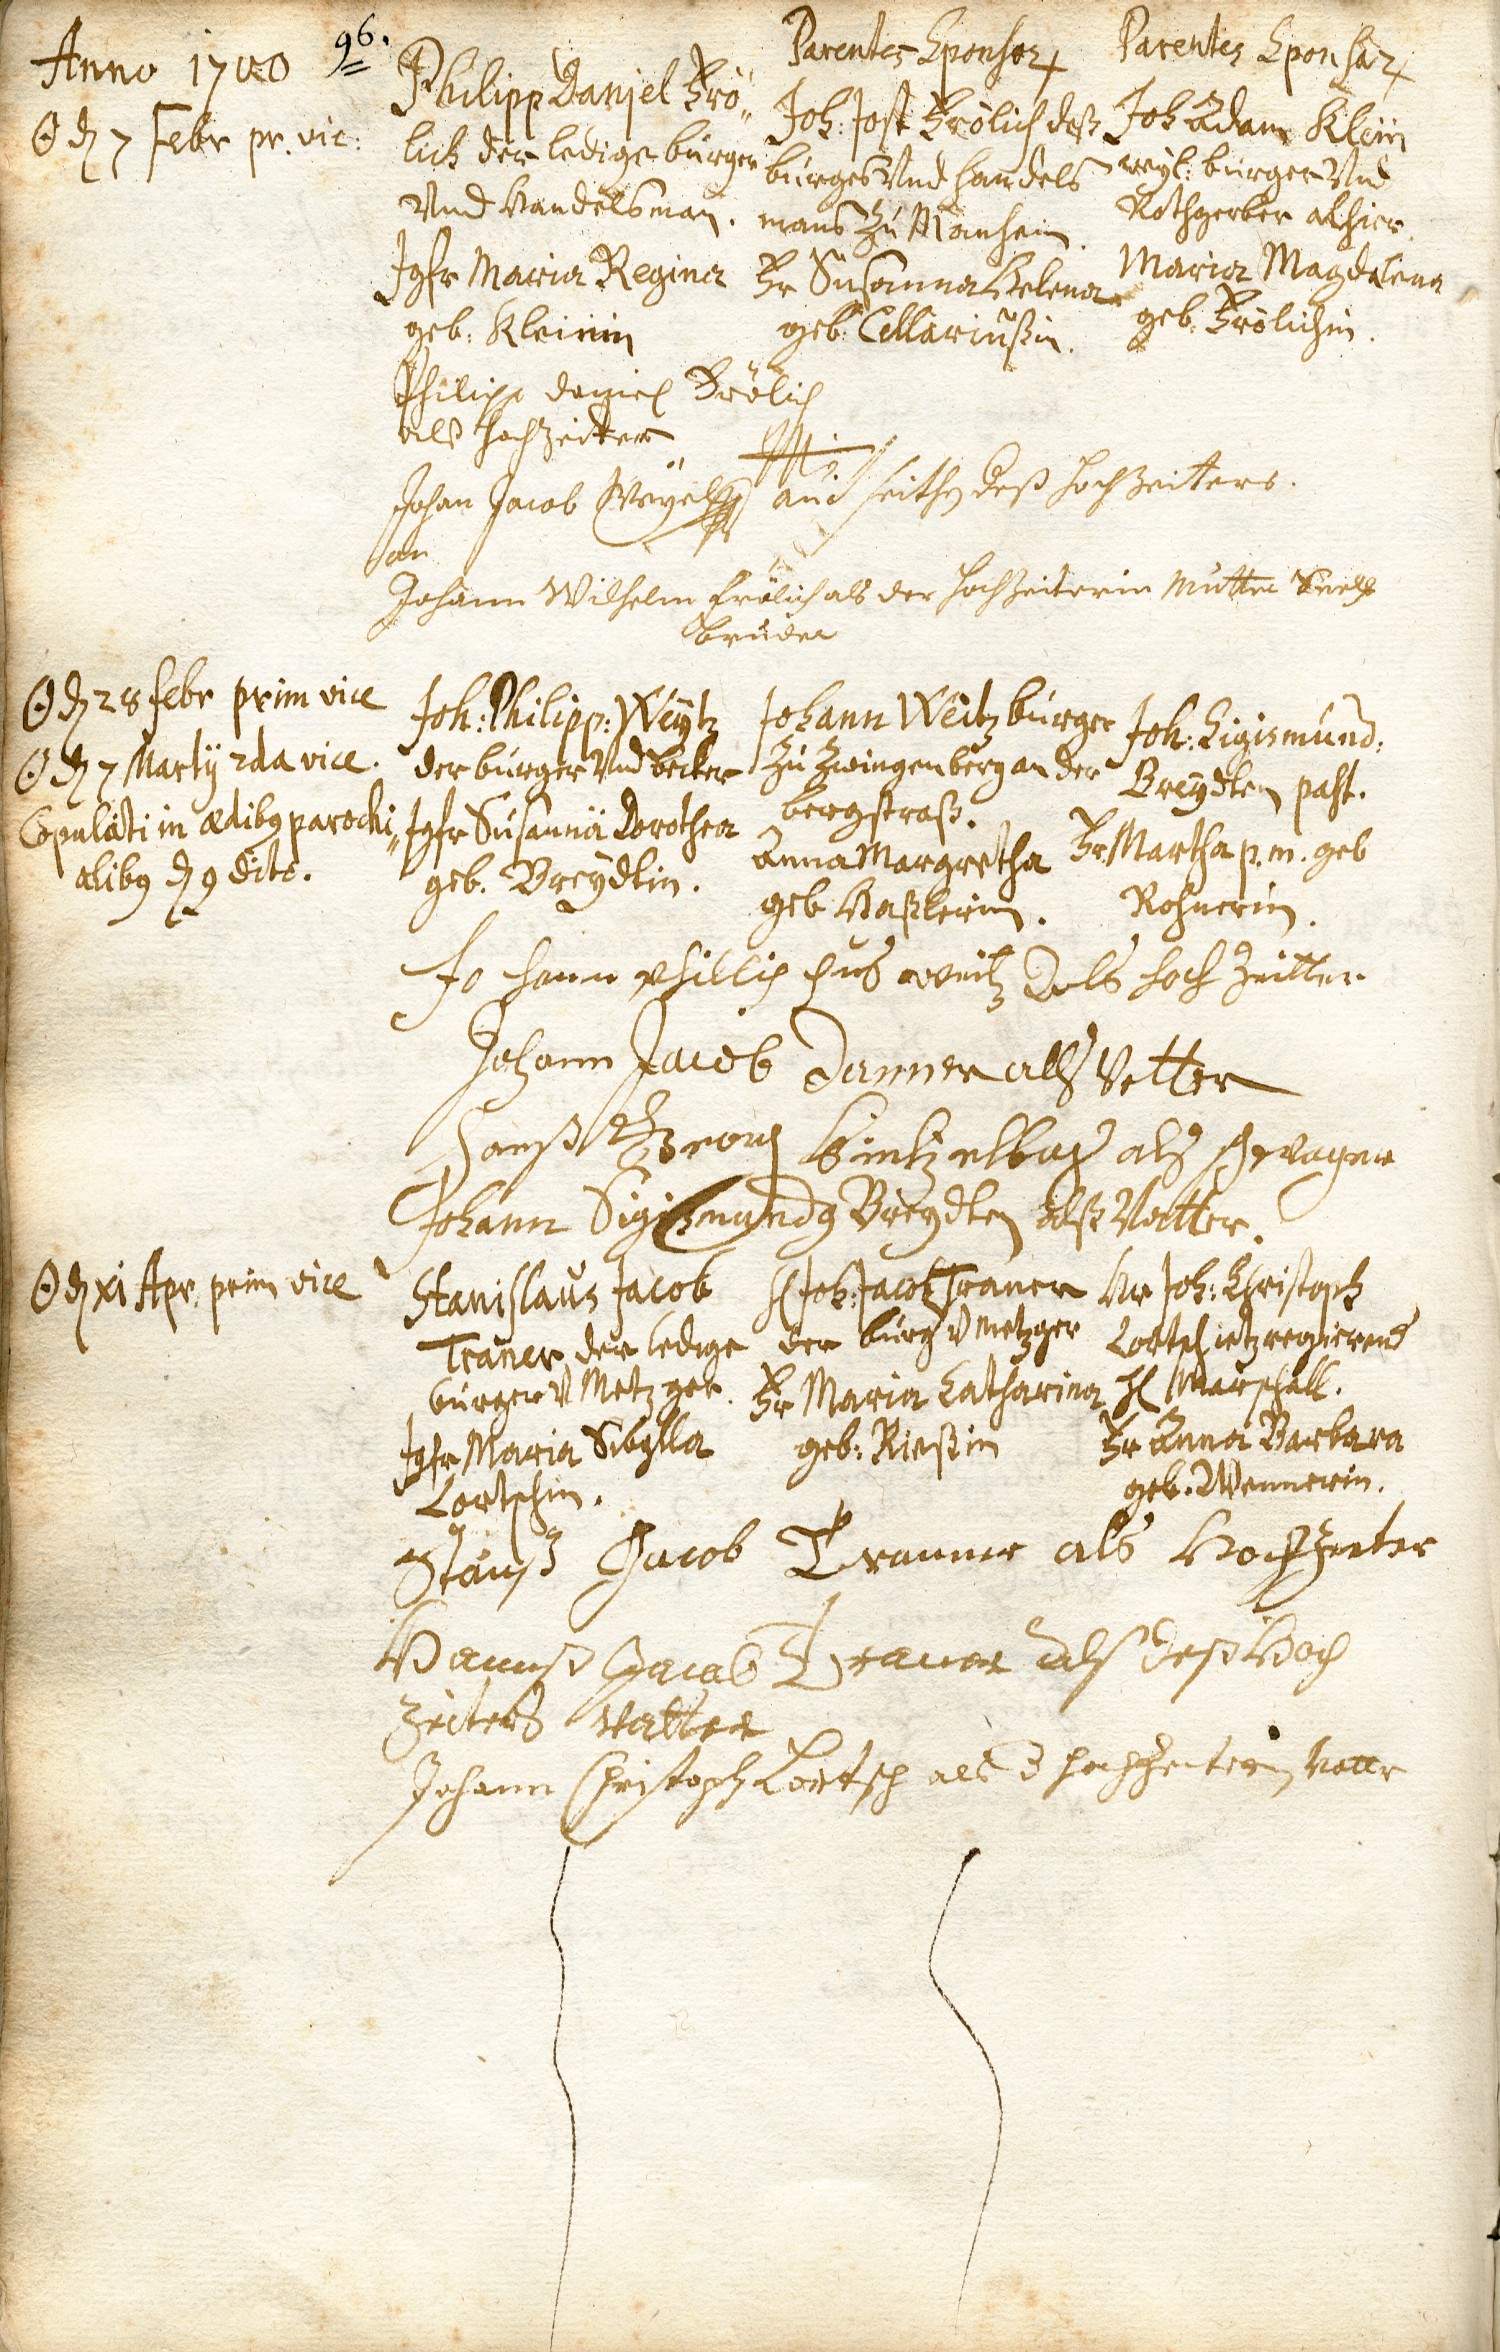 96.
Anno 1700
☉ d 7 Febr pr. vic:
Philipp Daniel Frö„
lich der ledige burger
Vnd Handelsman.
Jgfr Maria Regina
geb: Kleinin
Parentes Sponsor
Joh: Jost Frölich deß
burgers Vnd handels
mans Zu Manheim.
Fr Susanna Helena
geb: Cellariußin.
Parentes Sponsar
Joh Adam Klein
weyl: burger Vnd
Rothgerber alhier.
Maria Magdalena
geb: Frölichin.
Philipp daniel Frölich
alß hochzeitter
Johan Jacob Weyel auf seithen deß hochzeiters.
Johann Wilhelm Frölich als der hochzeiterin Mutter
bruder
☉ d 28 febr prim vice
☉ d 7 Martij 2da vice.
Copulati in ædibg parochi„
alibg d 9 dito.
Joh: Philipp: Weytz
der burger Vnd becker
Jgfr Susanna Dorothea
geb. Breydtin.
Johann Weitz burger
Zu Zwingenberg an der
bergstraß.
Anna Margretha
geb Haßlerin.
Joh: Sigismund:
Breydten past.
Fr. Martha p. m. geb
Rohnerin.
Jo hann phillip pus weitz Als hoch Zeitter
Johann Jacob Danner alß Vetter
Hanß Georg als schwager
Johann Sigismundg Breydten Alß Vatter.
☉ d xi Apr. prim vice
Stanislaus Jacob
Traner der ledige
burger V Metzger.
Jgfr Maria Sibylla
Lortschin.
H Joh: Jacob Traner
der burg V metzger
Fr Maria Catharina
geb: Rießin
Hr Joh: Christoph
Lortsch ietz regierend
H Marschall.
Fr Anna Barbara
geb. Wennerin.
Stanß Jacob Tranner als Hochzeiter
Hannß Jacob Traner alß deß Hoch
Zeiters Vatter
Johann Christoph Lortsch als d hochzeiterin Vattr